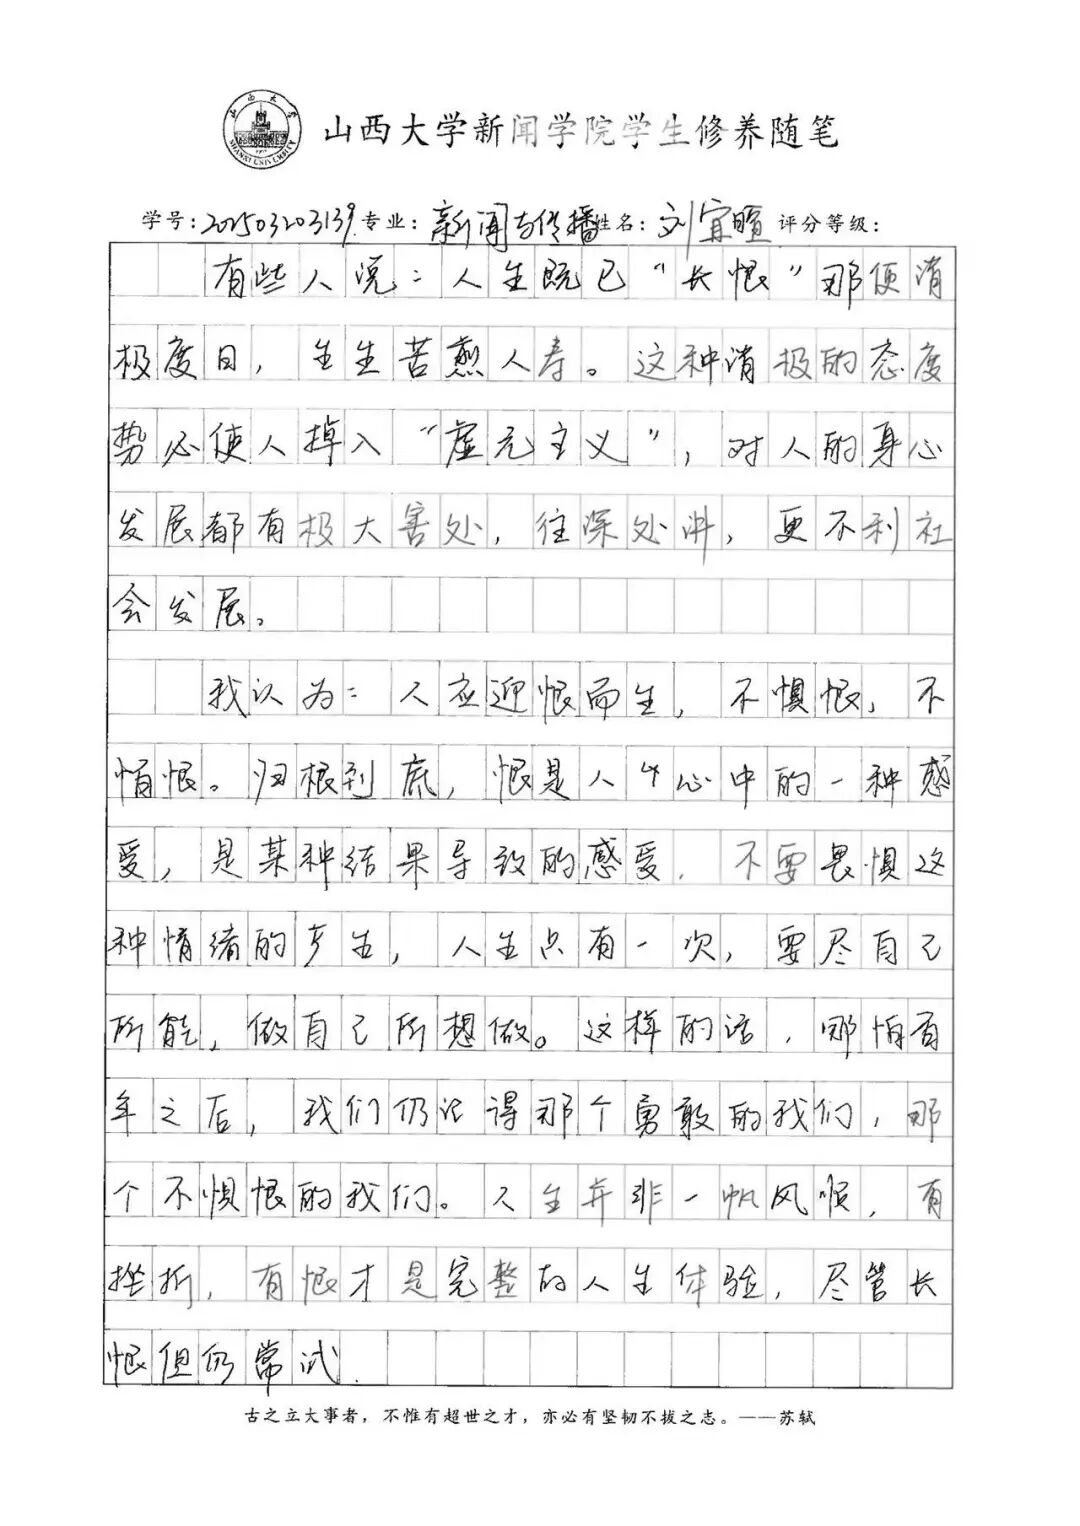 山西大学新闻学院学生修养随笔
学号：202503203139 专业：新闻与传播 姓名：刘宜暄 评分等级：
有些人说：人生既已“长恨”那便消
极度日，生生苦熬人寿。这种消极的态度
势必使人掉入“虚无主义”，对人的身心
发展都有极大害处，往深处讲，更不利社
会发展。
我认为：人应迎恨而生，不惧恨，不
怕恨。归根到底，恨是人内心中的一种感
受，是某种结果导致的感受．不要畏惧这
种情绪的产生，人生只有一次，要尽自己
所能，做自己所想做。这样的话，哪怕百
年之后，我们仍记得那个勇敢的我们，那
个不惧恨的我们。人生并非一帆风顺，有
挫折，有恨才是完整的人生体验，尽管长
恨但仍常试．
古之立大事者，不惟有超世之才，亦必有坚韧不拔之志。——苏轼